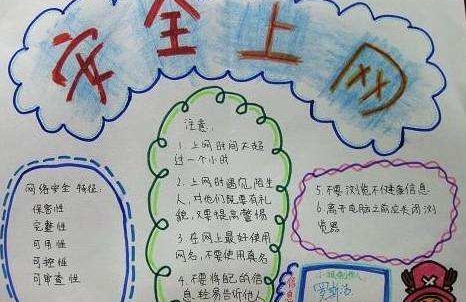 安全上网
网络安全 特征:
保密性
完整性
可用性
可控性
可审查性
注意:
1.上网时间不超
过一个小时
2.上网时遇见陌生
人,对他们既要有礼
貌,又要提高警惕
3.在网上最好使用
网名,不要使用真名
4.不要将自己的信
息轻易告诉他人
5.不要浏览不健康信息
6.离开电脑之前应关闭浏
览器
信息